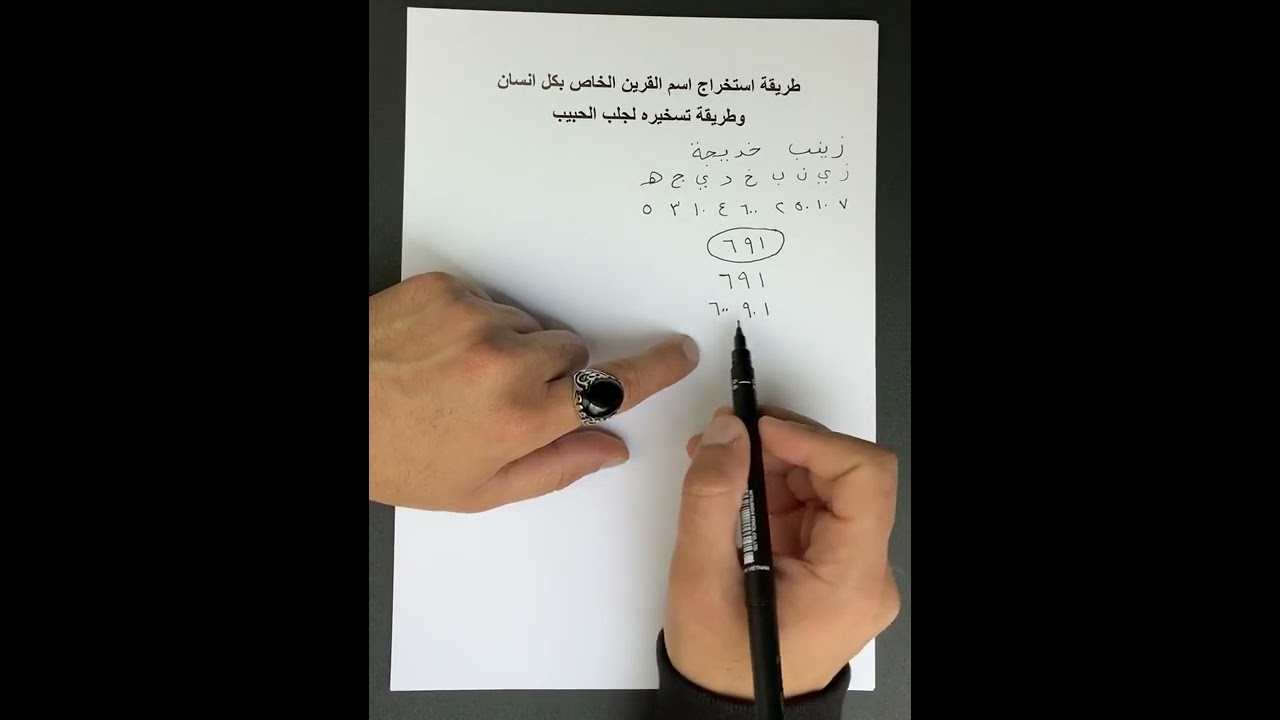 طريقة استخراج اسم القرين الخاص بكل انسان
وطريقة تسخيره لجلب الحبيب
زينب خديجة
ز ي ن ب خ د ي ج ه
٧ ١٠ ٥٠ ٢ ٦٠٠ ٤ ١٠ ٣ ٥
٦٩١
٦٩١
١ ٩٠ ٦٠٠